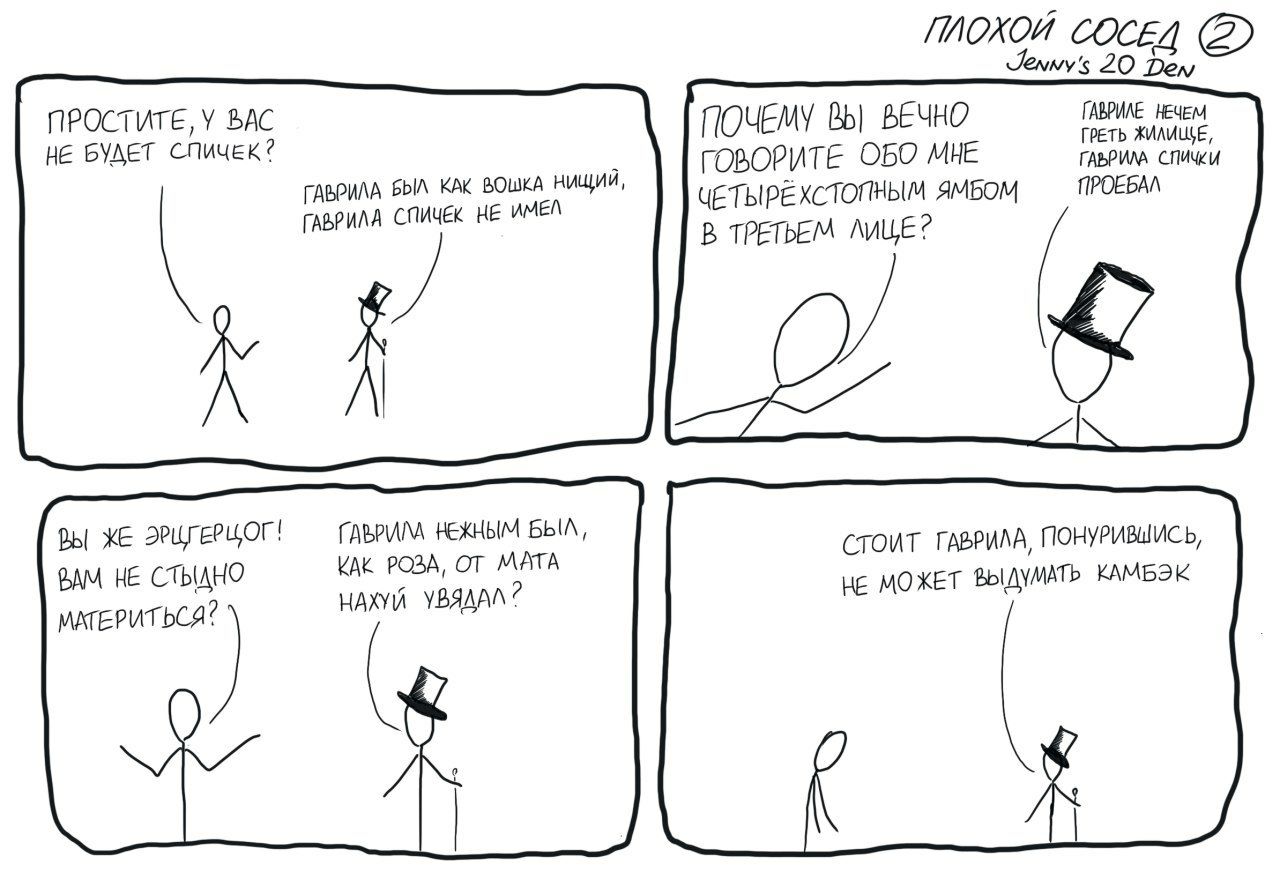 ПЛОХОЙ СОСЕД 2
Jenny's 20 Den
ПРОСТИТЕ, У ВАС
НЕ БУДЕТ СПИЧЕК?
ГАВРИЛА БЫЛ КАК ВОШКА НИЩИЙ,
ГАВРИЛА СПИЧЕК НЕ ИМЕЛ
ПОЧЕМУ ВЫ ВЕЧНО
ГОВОРИТЕ ОБО МНЕ
ЧЕТЫРЁХСТОПНЫМ ЯМБОМ
В ТРЕТЬЕМ ЛИЦЕ?
ГАВРИЛЕ НЕЧЕМ
ГРЕТЬ ЖИЛИЩЕ,
ГАВРИЛА СПИЧКИ
ПРОЕБАЛ
ВЫ ЖЕ ЭРЦГЕРЦОГ!
ВАМ НЕ СТЫДНО
МАТЕРИТЬСЯ?
ГАВРИЛА НЕЖНЫМ БЫЛ,
КАК РОЗА, ОТ МАТА
НАХУЙ УВЯДАЛ?
СТОИТ ГАВРИЛА, ПОНУРИВШИСЬ,
НЕ МОЖЕТ ВЫДУМАТЬ КАМБЭК